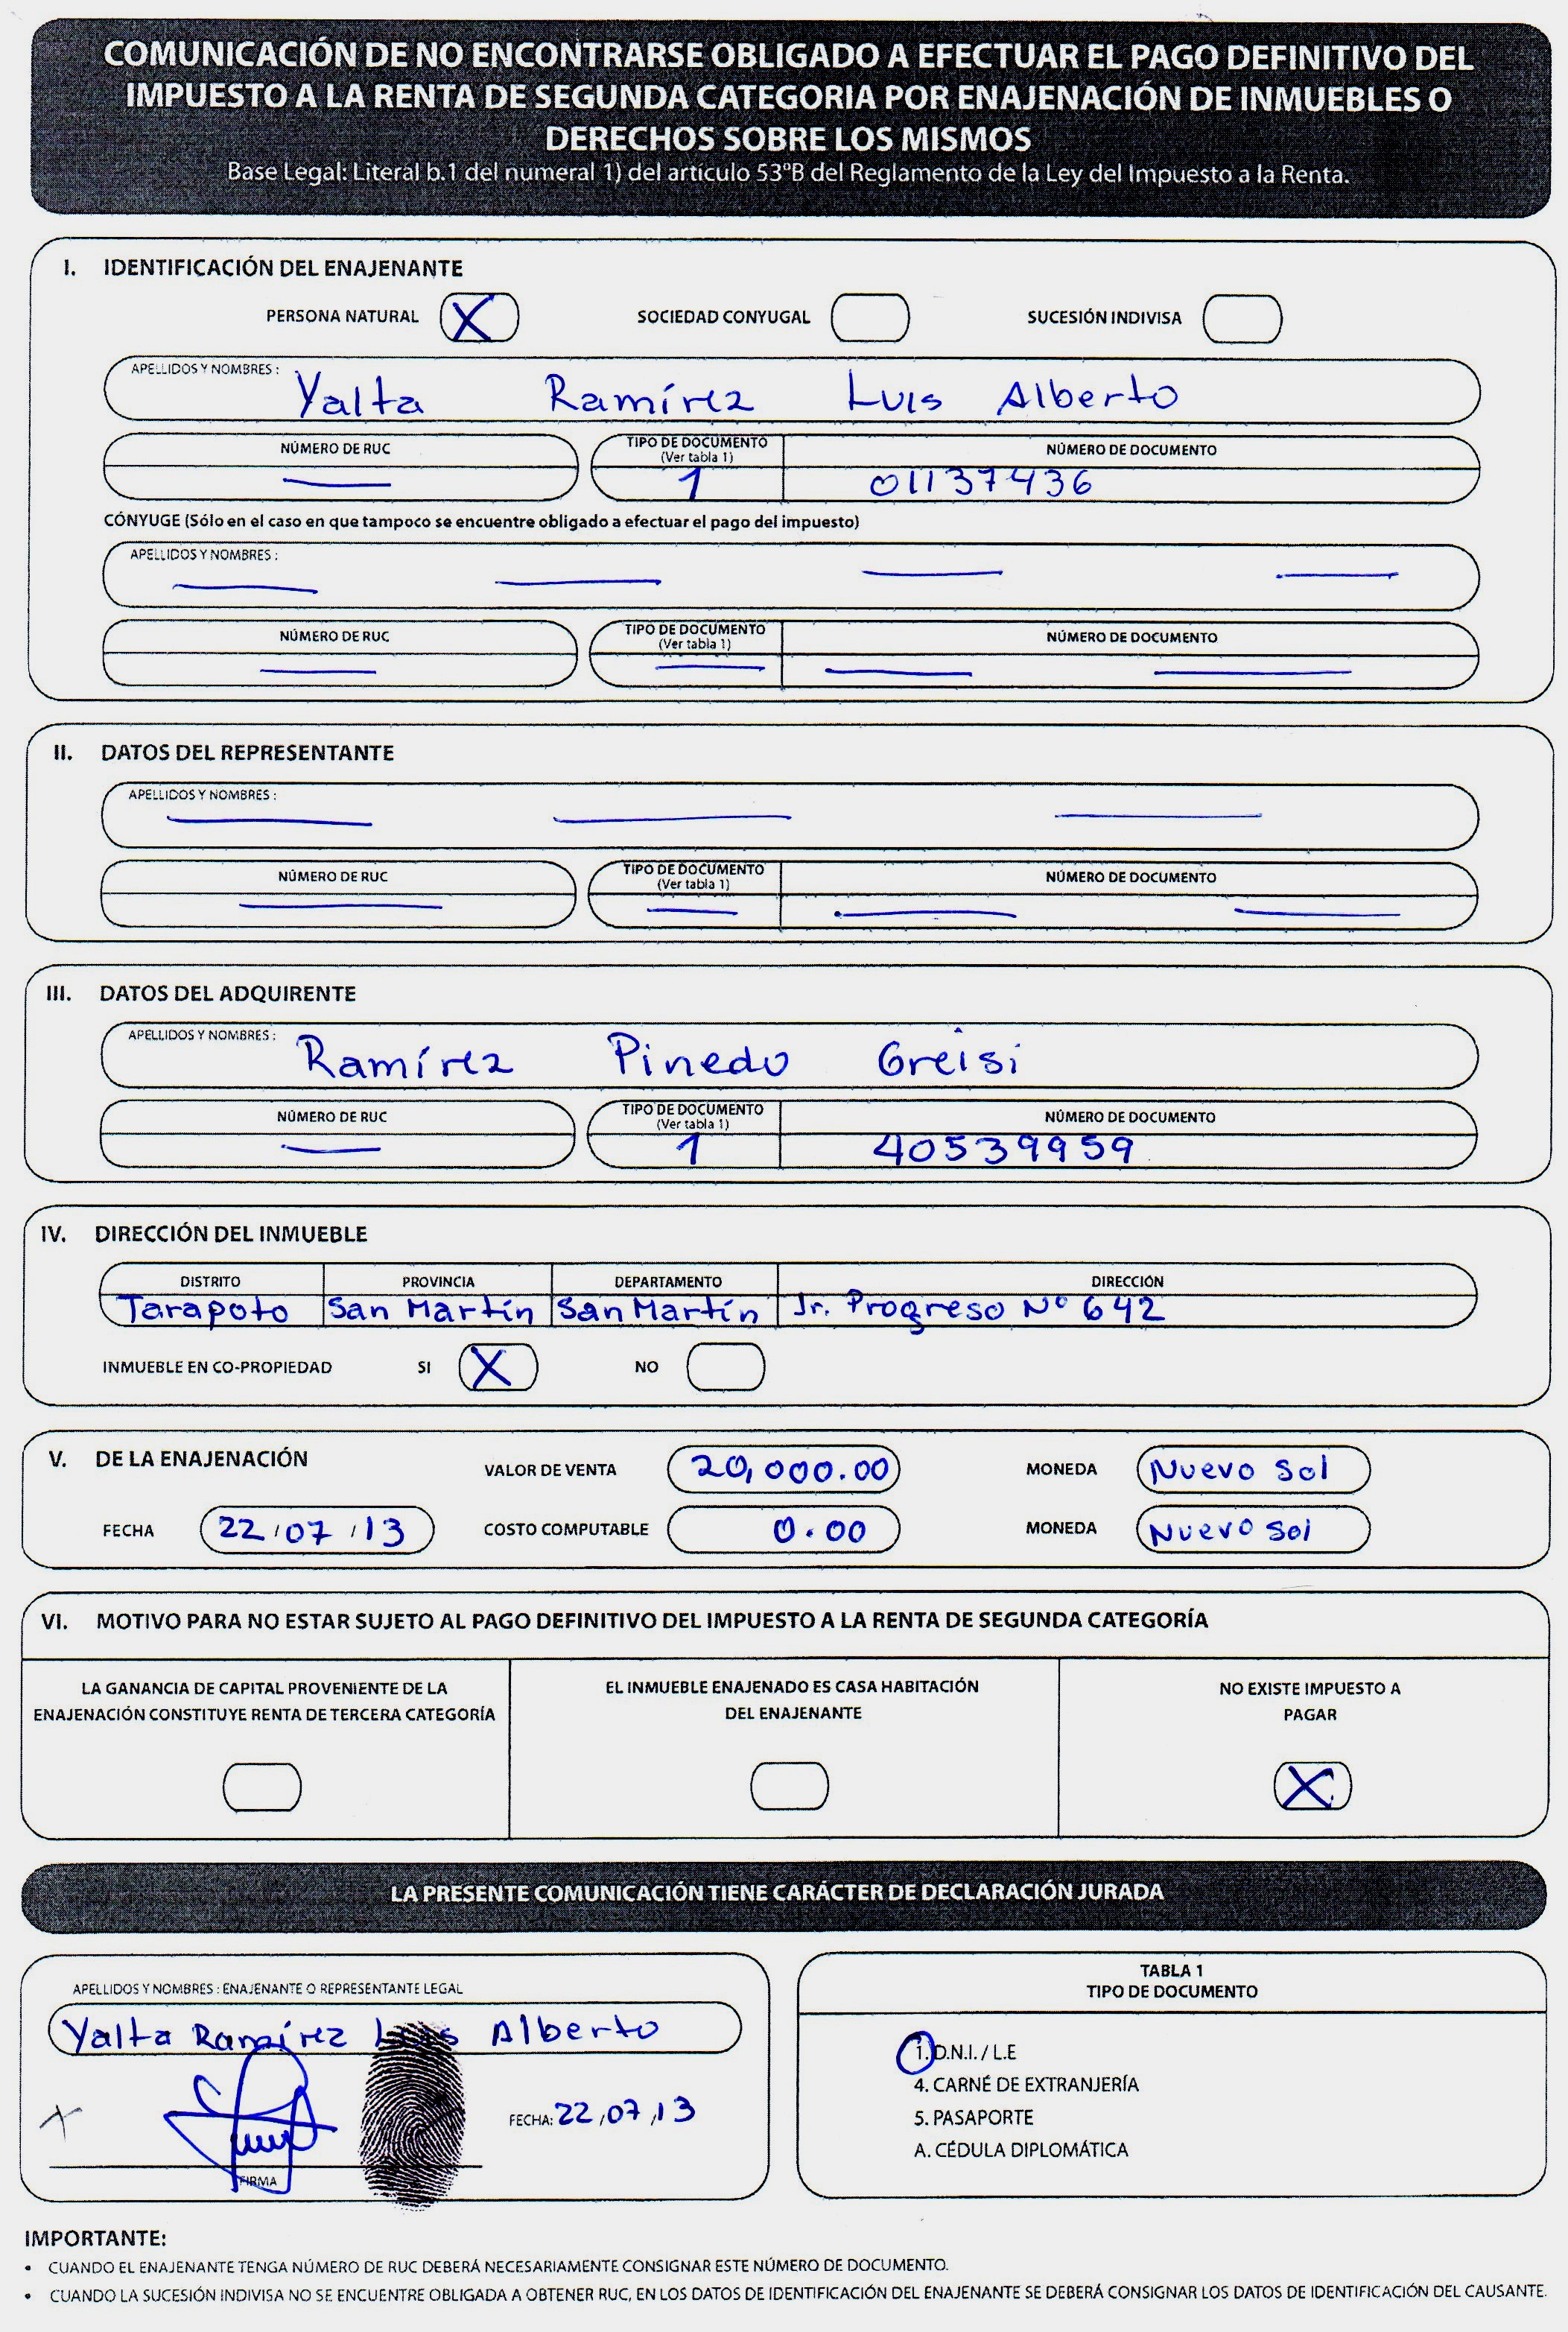 COMUNICACIÓN DE NO ENCONTRARSE OBLIGADO A EFECTUAR EL PAGO DEFINITIVO DEL
IMPUESTO A LA RENTA DE SEGUNDA CATEGORIA POR ENAJENACIÓN DE INMUEBLES O
DERECHOS SOBRE LOS MISMOS
Base Legal: Literal b.1 del numeral 1) del artículo 53ºB del Reglamento de la Ley del Impuesto a la Renta.
I. IDENTIFICACIÓN DEL ENAJENANTE
PERSONA NATURAL X SOCIEDAD CONYUGAL SUCESIÓN INDIVISA
APELLIDOS Y NOMBRES : Yalta Ramírez Luis Alberto
NÚMERO DE RUC TIPO DE DOCUMENTO (Ver tabla 1) NÚMERO DE DOCUMENTO
— 1 01137436
CÓNYUGE (Sólo en el caso en que tampoco se encuentre obligado a efectuar el pago del impuesto)
APELLIDOS Y NOMBRES : — — — —
NÚMERO DE RUC TIPO DE DOCUMENTO (Ver tabla 1) NÚMERO DE DOCUMENTO
— — — —
II. DATOS DEL REPRESENTANTE
APELLIDOS Y NOMBRES : — — —
NÚMERO DE RUC TIPO DE DOCUMENTO (Ver tabla 1) NÚMERO DE DOCUMENTO
— — — —
III. DATOS DEL ADQUIRENTE
APELLIDOS Y NOMBRES : Ramírez Pinedo Greisi
NÚMERO DE RUC TIPO DE DOCUMENTO (Ver tabla 1) NÚMERO DE DOCUMENTO
— 1 40539959
IV. DIRECCIÓN DEL INMUEBLE
DISTRITO PROVINCIA DEPARTAMENTO DIRECCIÓN
Tarapoto San Martín San Martín Jr. Progreso Nº 642
INMUEBLE EN CO-PROPIEDAD SI X NO
V. DE LA ENAJENACIÓN VALOR DE VENTA 20,000.00 MONEDA Nuevo Sol
FECHA 22/07/13 COSTO COMPUTABLE 0.00 MONEDA Nuevo Sol
VI. MOTIVO PARA NO ESTAR SUJETO AL PAGO DEFINITIVO DEL IMPUESTO A LA RENTA DE SEGUNDA CATEGORÍA
LA GANANCIA DE CAPITAL PROVENIENTE DE LA
ENAJENACIÓN CONSTITUYE RENTA DE TERCERA CATEGORÍA
EL INMUEBLE ENAJENADO ES CASA HABITACIÓN
DEL ENAJENANTE
NO EXISTE IMPUESTO A
PAGAR
X
LA PRESENTE COMUNICACIÓN TIENE CARÁCTER DE DECLARACIÓN JURADA
APELLIDOS Y NOMBRES : ENAJENANTE O REPRESENTANTE LEGAL
Yalta Ramírez Luis Alberto
FECHA: 22/07/13
FIRMA
TABLA 1
TIPO DE DOCUMENTO
1. D.N.I. / L.E
4. CARNÉ DE EXTRANJERÍA
5. PASAPORTE
A. CÉDULA DIPLOMÁTICA
IMPORTANTE:
• CUANDO EL ENAJENANTE TENGA NÚMERO DE RUC DEBERÁ NECESARIAMENTE CONSIGNAR ESTE NÚMERO DE DOCUMENTO.
• CUANDO LA SUCESIÓN INDIVISA NO SE ENCUENTRE OBLIGADA A OBTENER RUC, EN LOS DATOS DE IDENTIFICACIÓN DEL ENAJENANTE SE DEBERÁ CONSIGNAR LOS DATOS DE IDENTIFICACIÓN DEL CAUSANTE.